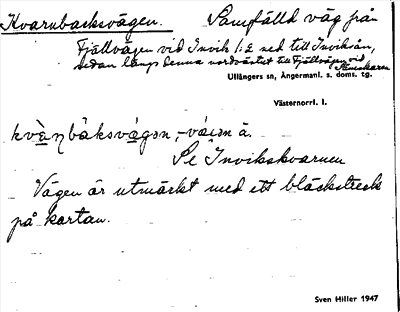 Kvarnbacksvägen. Samfälld väg från
Fjällvägen vid Invik 1:2 ned till Inviksån,
sedan längs denna nordväst till Fjällvägen vid
Ullångers sn, Ångermanl. s. doms. tg.
Västernorrl. l.
Se Invikskvarnen
Vägen är utmärkt med ett bläckstreck
på kartan.
Sven Hiller 1947